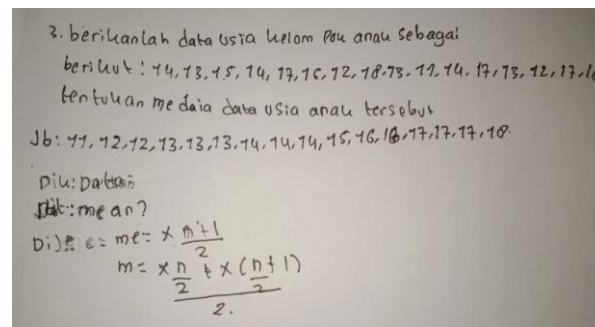 3. berikanlah data usia kelom pok anak sebagai
berikut : 14, 13, 15, 14, 17, 16, 12, 18, 13, 11, 14, 17, 13, 12, 17, 16
tentukan me daia data usia anak tersebut
Jb: 11, 12, 12, 13, 13, 13, 14, 14, 14, 15, 16, 16, 17, 17, 17, 18.
Dik: Data
Dit: mean?
Dij = me = x n+1
2
m = x n + x (n + 1)
2 2
2.